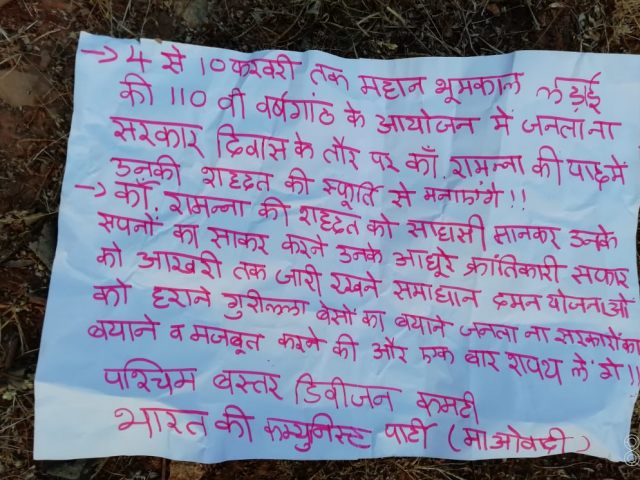 → 4 से 10 फरवरी तक महान भूमकाल लड़ाई
की 110 वी वर्षगांठ के आयोजन में जनताना
सरकार दिवास के तौर पर कॉ. रामन्ना की याद में
उनकी शहदत की स्फूर्ति से मनाएंगे !!
→ कॉ. रामन्ना की शहदत को साहासी मानकर उनके
सपनों का साकार करने उनके आधूरे क्रांतिकारी सफर
को आखरी तक जारी रखने समाधान दमन योजनाओ
को हराने गुरील्ला बेसों का बयाने जनता ना सरकारों का
बयाने व मजबूत करने की और एक बार शपथ लेंगे !!
पश्चिम बस्तर डिवीजन कमटी
भारत की कम्युनिस्ट पार्टी (माओवादी)